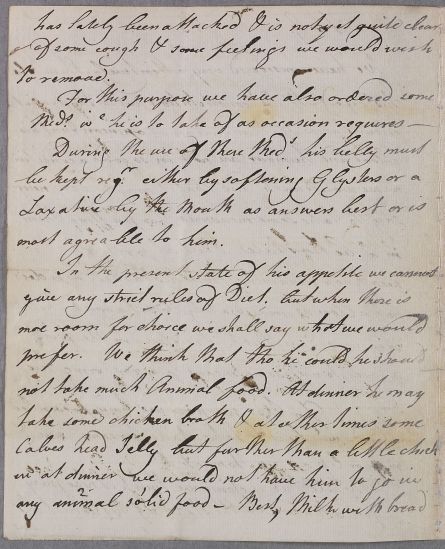 has lately been attacked & is not yet quite clear
of some cough & some feelings we would wish
to remove.
For this purpose we have also ordered some
Meds. wc he is to take of as occasion requires –
During the use of these Meds. his belly must
be kept regr. either by softening Glysters or a
Laxative by the Mouth as answers best or is
most agreable to him.
In the present state of his appetite we cannot
give any strict rules of Diet, but when there is
more room for choice we shall say what we would
prefer. We think that tho he could he should
not take much Animal food. At dinner he may
take some chicken broth & at other times some
Calves head Jelly but further than a little chick
en at dinner we would not have him to go in
any animal solid food – Best, Milk with bread